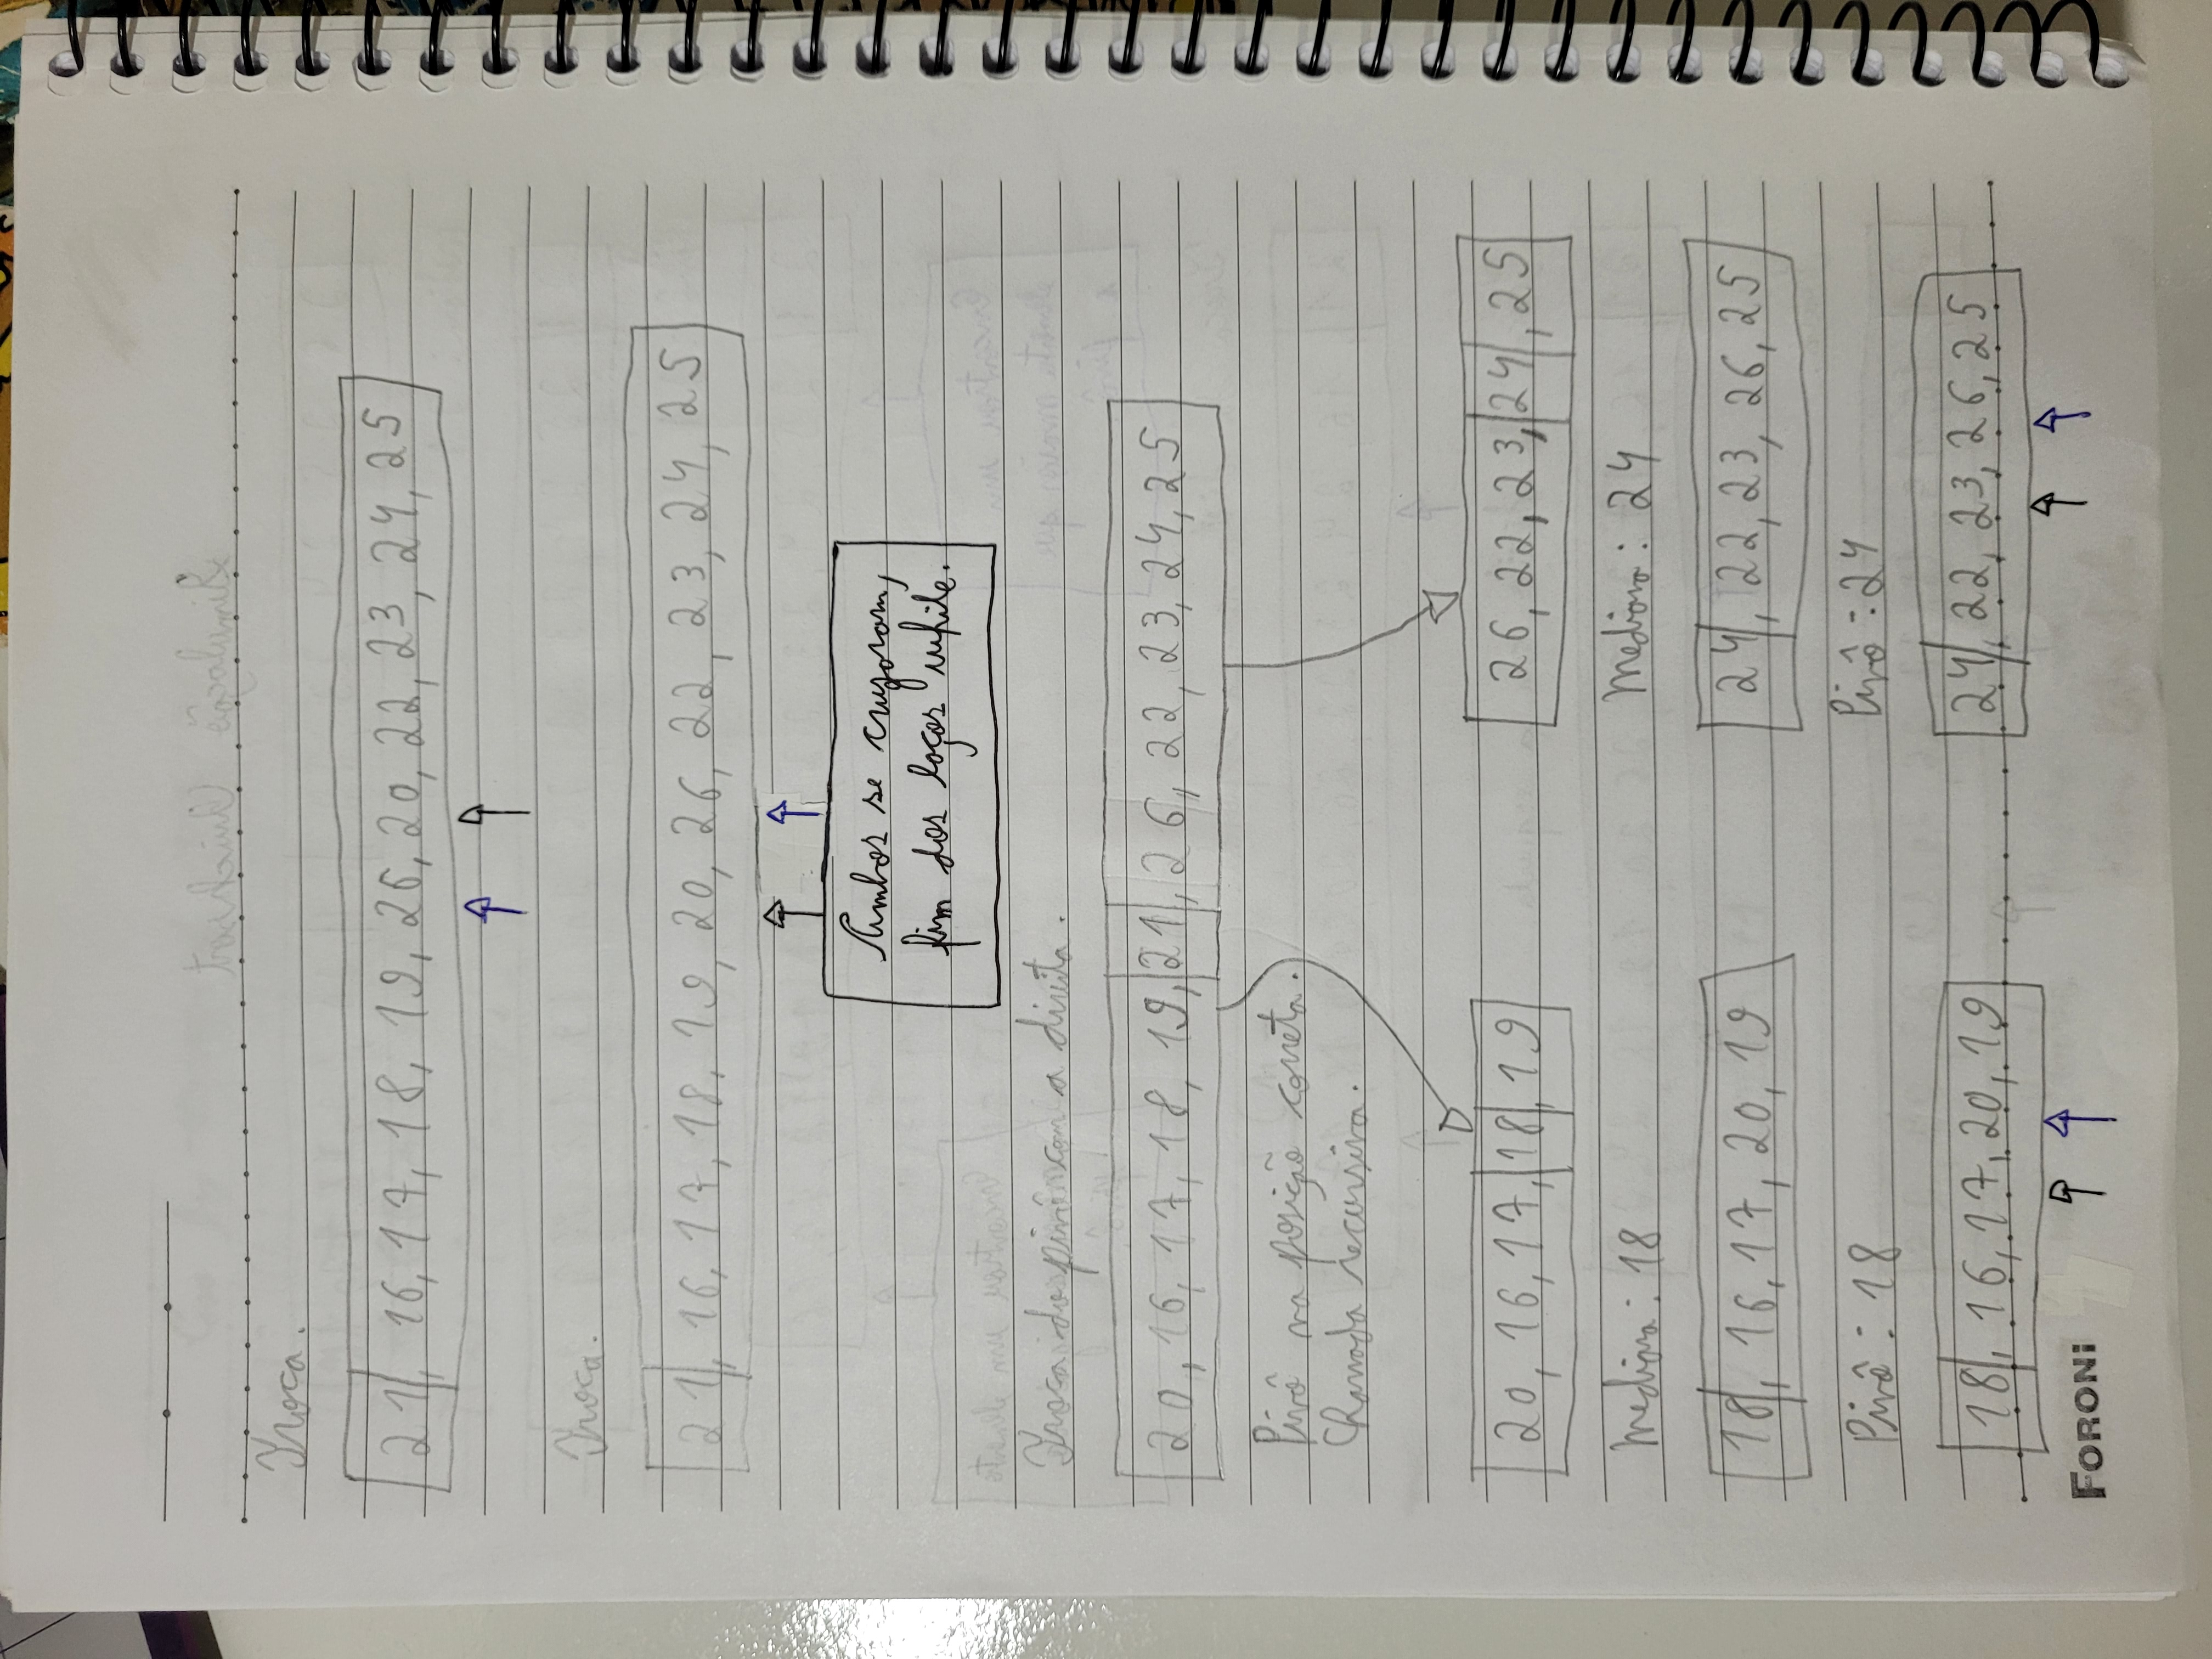 Troca.
21, 16, 17, 18, 19, 26, 20, 22, 23, 24, 25
Troca.
21, 16, 17, 18, 19, 20, 26, 22, 23, 24, 25
Ambos se cruzaram,
fim dos laços while.
Troca do pivô com a direita.
20, 16, 17, 18, 19, 21, 26, 22, 23, 24, 25
Pivô na posição correta.
Chamada recursiva.
20, 16, 17, 18, 19
26, 22, 23, 24, 25
Mediana: 18
Mediana: 24
18, 16, 17, 20, 19
24, 22, 23, 26, 25
Pivô: 18
Pivô: 24
18, 16, 17, 20, 19
24, 22, 23, 26, 25
FORONI